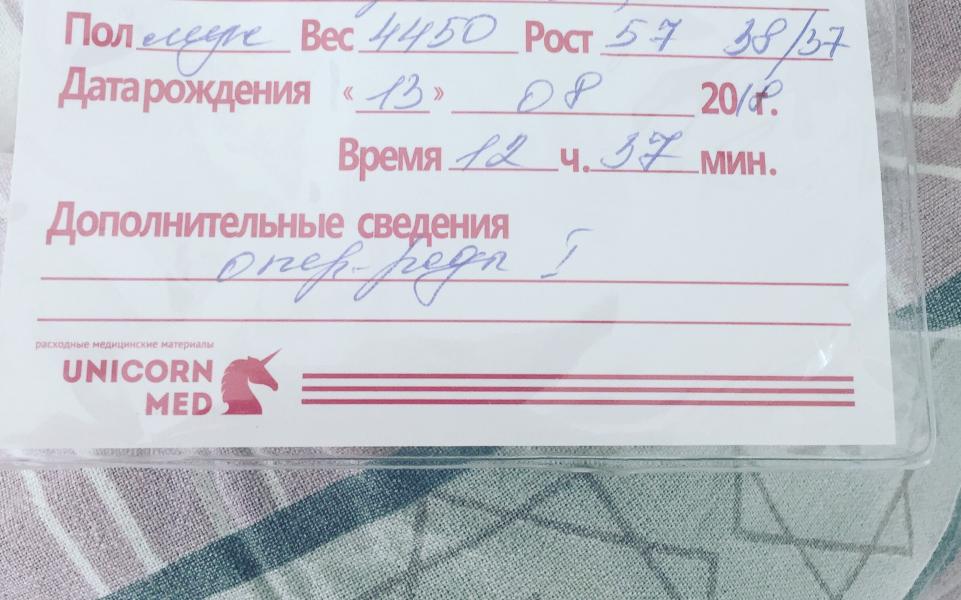 Пол муж Вес 4450 Рост 57 38/37
Дата рождения « 13 » 08 2018г.
Время 12 ч. 37 мин.
Дополнительные сведения
опер. роды I
расходные медицинские материалы
UNICORN
MED